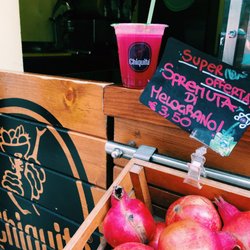 Chiquita
SUPER
OFFERTA
SPREMUTA
DI
MELOGRANO!
3,50
Chiquit